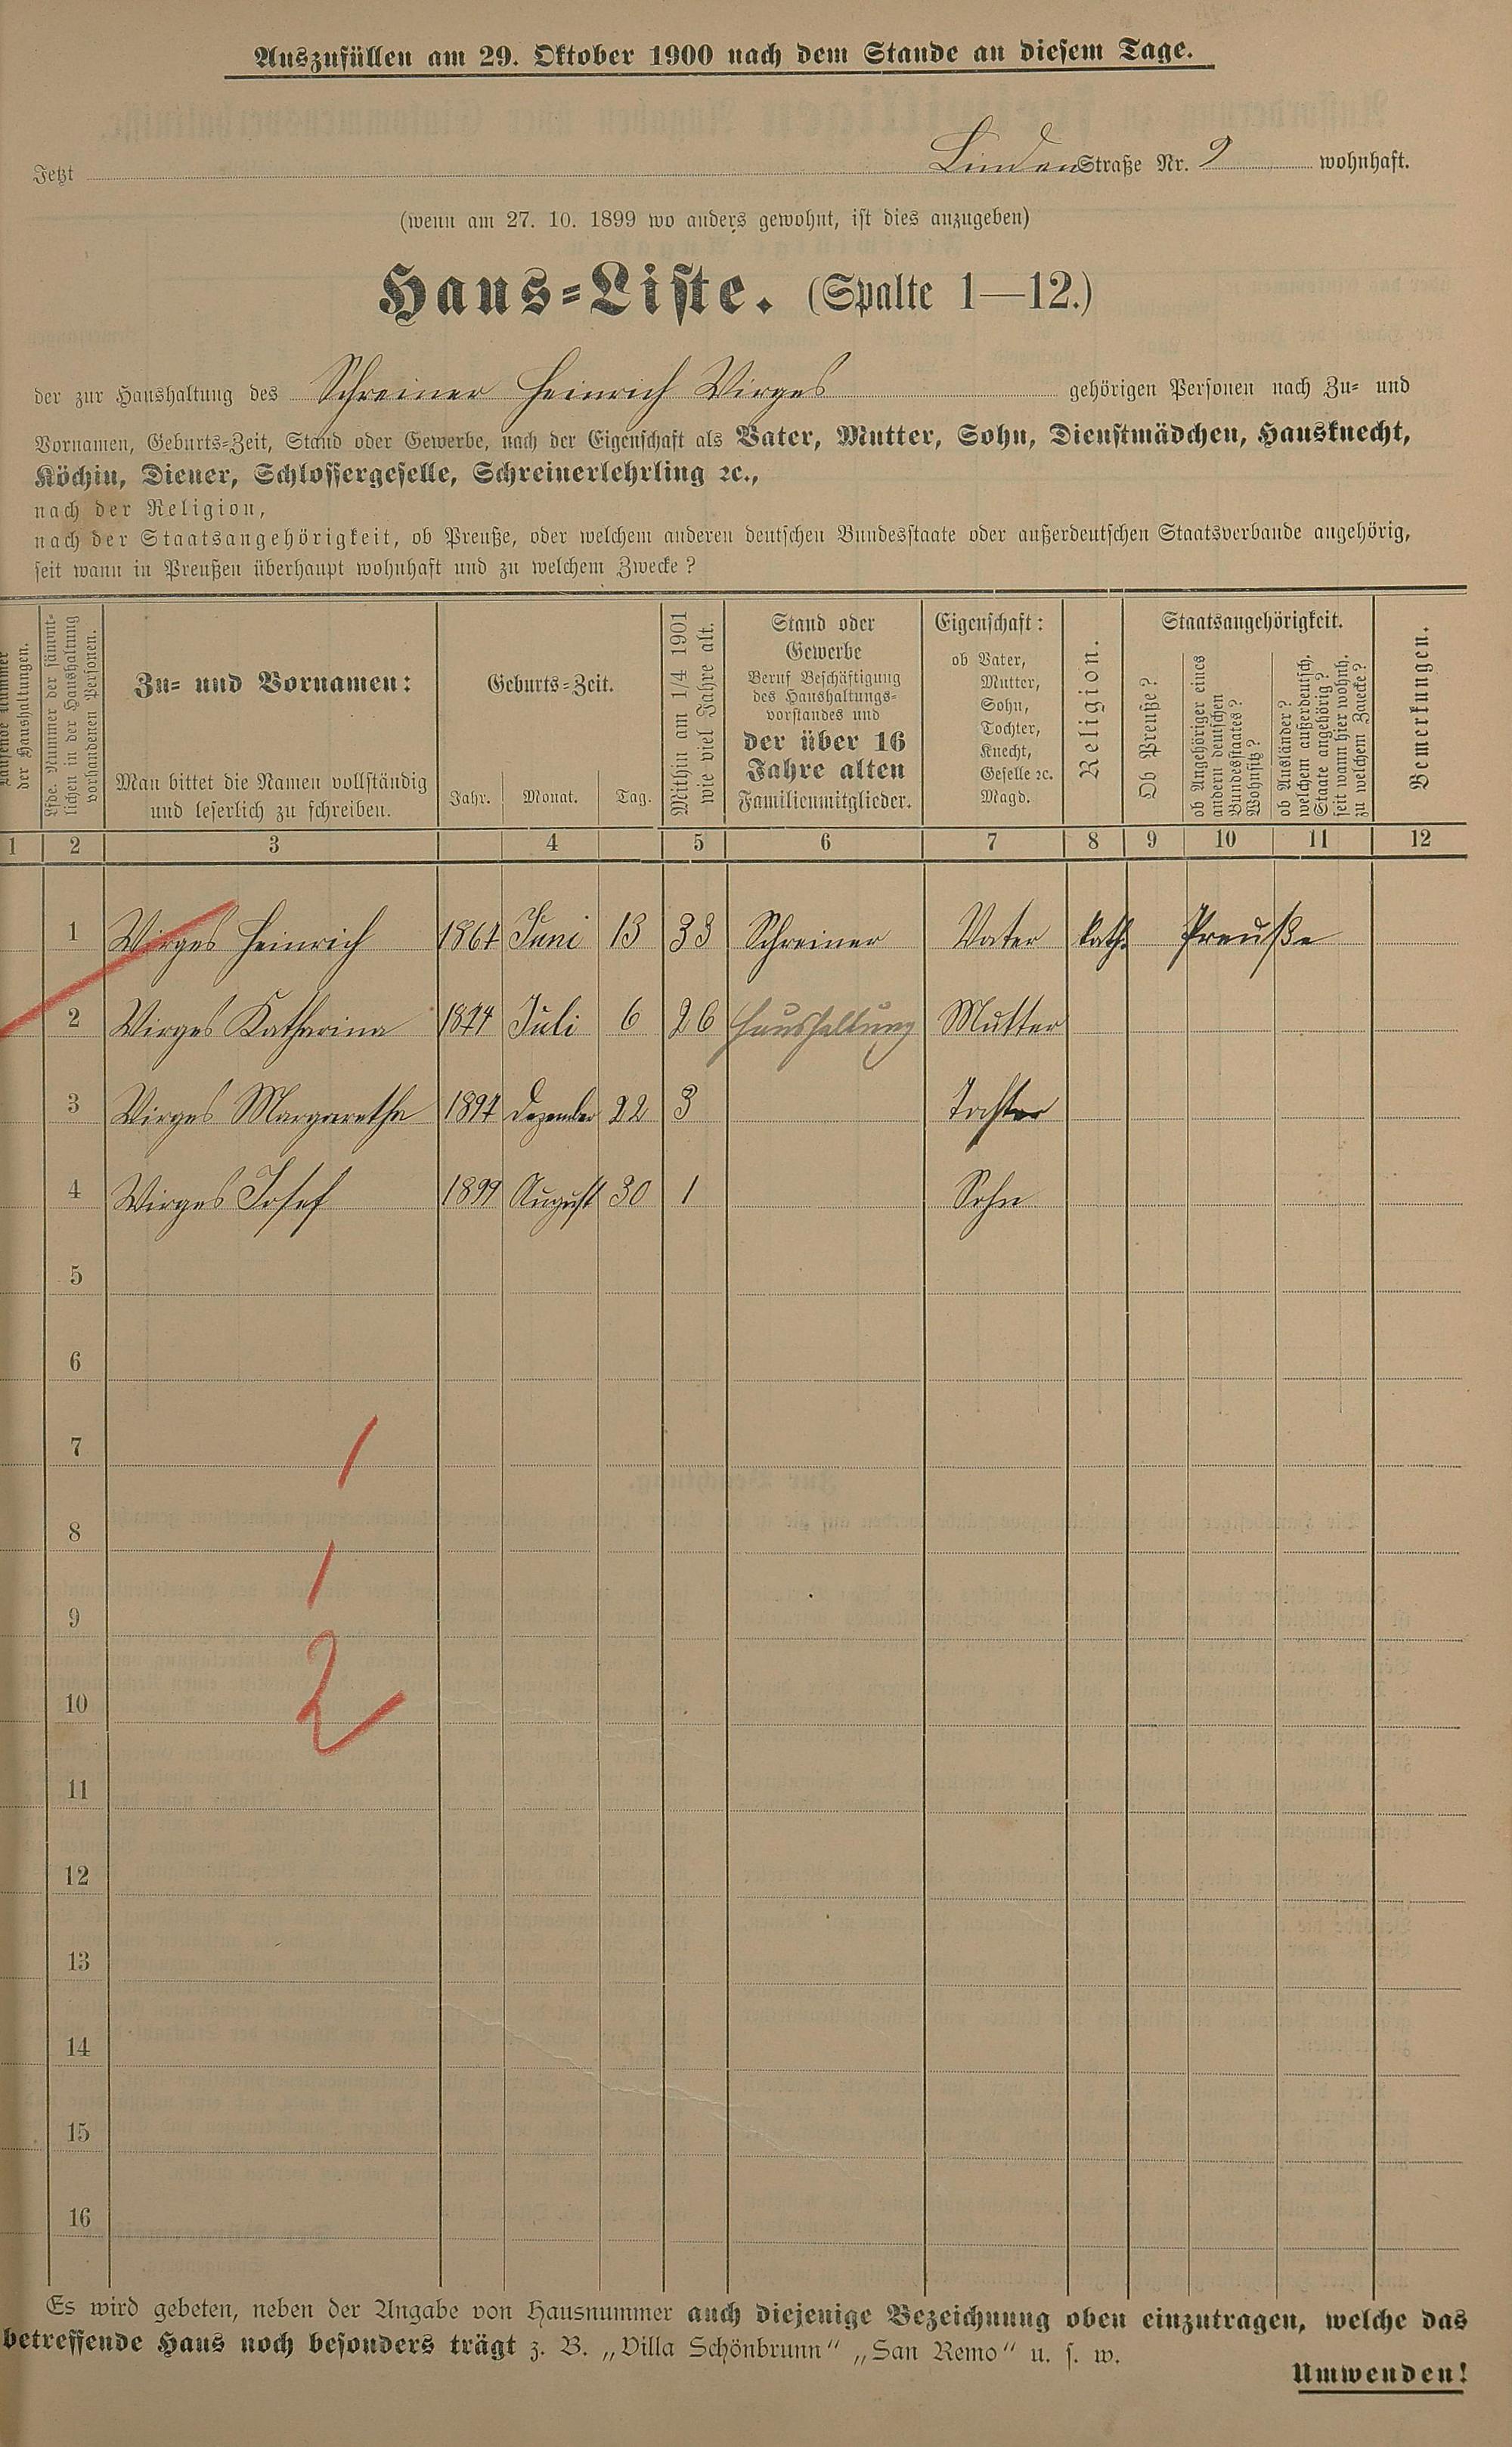 Auszufüllen am 29. Oktober 1900 nach dem Stande an diesem Tage.
Jetzt Linden Straße Nr. 2 wohnhaft.
(wenn am 27. 10. 1899 wo anders gewohnt, ist dies anzugeben)
Haus-Liste. (Spalte 1—12.)
der zur Haushaltung des Schreiner Heinrich Virges gehörigen Personen nach Zu- und
Vornamen, Geburts-Zeit, Stand oder Gewerbe, nach der Eigenschaft als Vater, Mutter, Sohn, Dienstmädchen, Hausknecht,
Köchin, Diener, Schlossergeselle, Schreinerlehrling ꝛc.,
nach der Religion,
nach der Staatsangehörigkeit, ob Preuße, oder welchem anderen deutschen Bundesstaate oder außerdeutschen Staatsverbande angehörig,
seit wann in Preußen überhaupt wohnhaft und zu welchem Zwecke?
Laufende Nummer
der Haushaltungen.
Lfde. Nummer der sämmt-
lichen in der Haushaltung
vorhandenen Personen.
Zu- und Vornamen:
Man bittet die Namen vollständig
und leserlich zu schreiben.
Geburts-Zeit.
Jahr. Monat. Tag.
Mithin am 1/4 1901
wie viel Jahre alt.
Stand oder
Gewerbe
Beruf Beschäftigung
des Haushaltungs-
vorstandes und
der über 16
Jahre alten
Familienmitglieder.
Eigenschaft:
ob Vater,
Mutter,
Sohn,
Tochter,
Knecht,
Geselle ꝛc.
Magd.
Religion.
Staatsangehörigkeit.
Ob Preuße?
ob Angehöriger eines
andern deutschen
Bundesstaates?
Wohnsitz?
ob Ausländer?
welchem außerdeutsch.
Staate angehörig?
seit wann hier wohnh.
zu welchem Zwecke?
Bemerkungen.
1 2 3 4 5 6 7 8 9 10 11 12
1 Virges Heinrich 1867 Juni 13 33 Schreiner Vater kath. Preuße
2 Virges Katharina 1874 Juli 6 26 Haushaltung Mutter
3 Virges Margarethe 1897 Dezember 22 3 Tochter
4 Virges Josef 1899 August 30 1 Sohn
5
6
7 1
8 1
9
10 2
11
12
13
14
15
16
Es wird gebeten, neben der Angabe von Hausnummer auch diejenige Bezeichnung oben einzutragen, welche das
betreffende Haus noch besonders trägt z. B. „Villa Schönbrunn“ „San Remo“ u. s. w.
Umwenden!